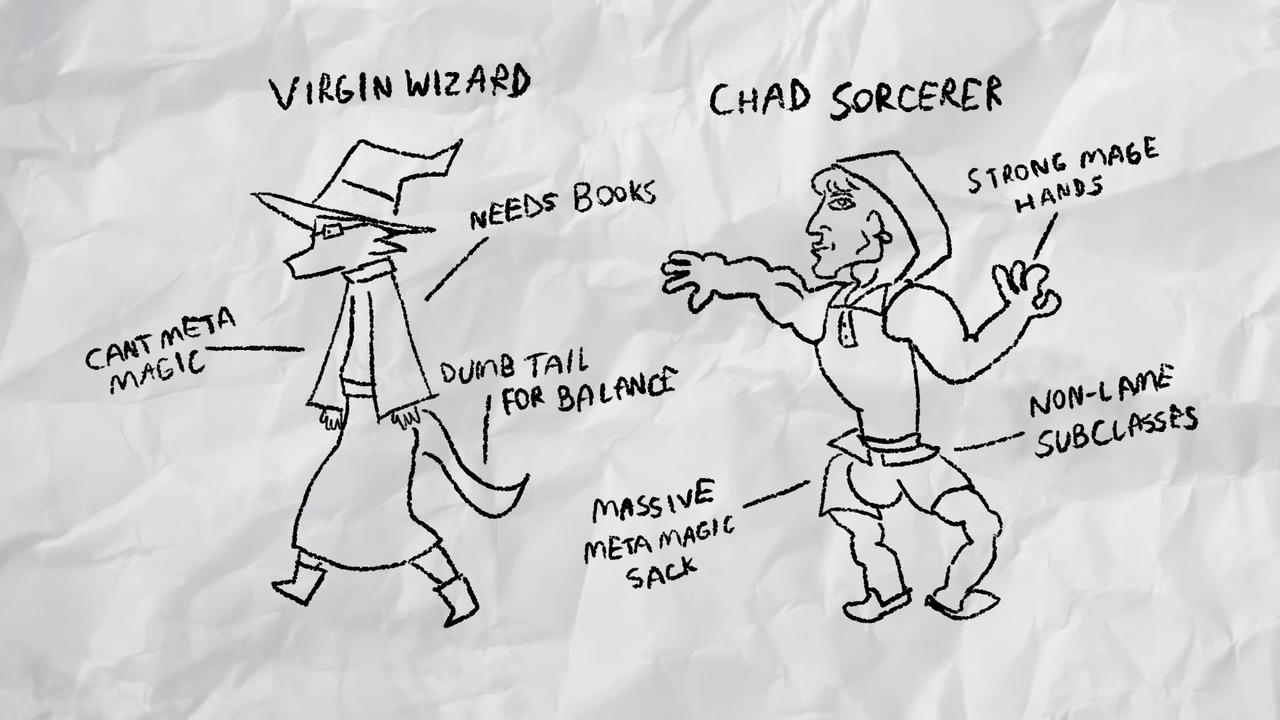 VIRGIN WIZARD
CHAD SORCERER
NEEDS BOOKS
CANT META
MAGIC
DUMB TAIL
FOR BALANCE
STRONG MAGE
HANDS
NON-LAME
SUBCLASSES
MASSIVE
META MAGIC
SACK